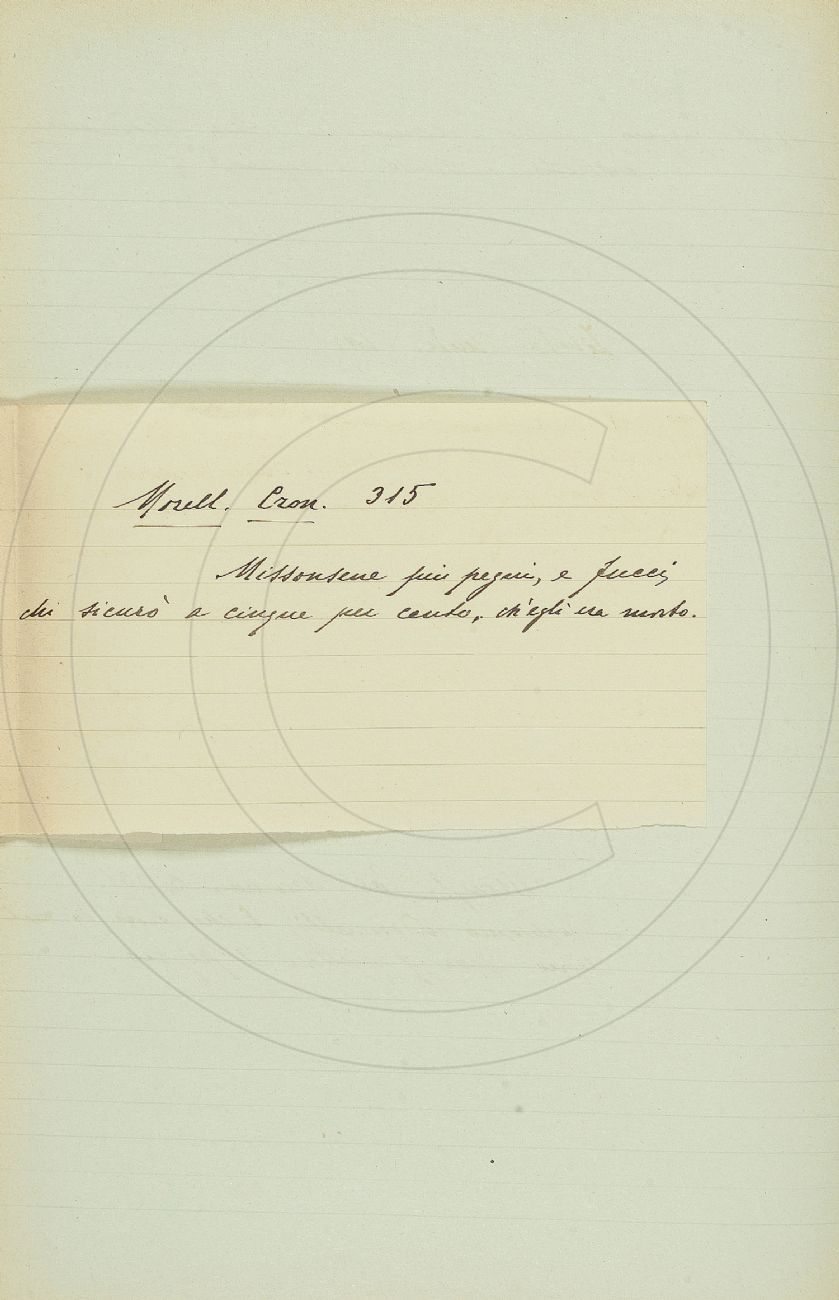 Morell. Cron. 315
Missonsene più pegni, e fucci
chi sicurò a cinque per cento, ch'egli era morto.